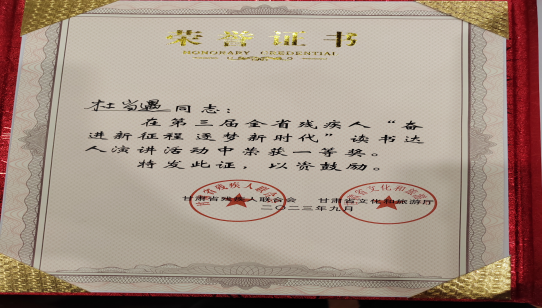 荣誉证书
HONORARY CREDENTIAL
杜当遇同志：
在第三届全省残疾人“奋
进新征程 逐梦新时代”读书达
人演讲活动中荣获一等奖。
特发此证，以资鼓励。
甘肃省残疾人联合会 甘肃省文化和旅游厅
二〇二三年九月